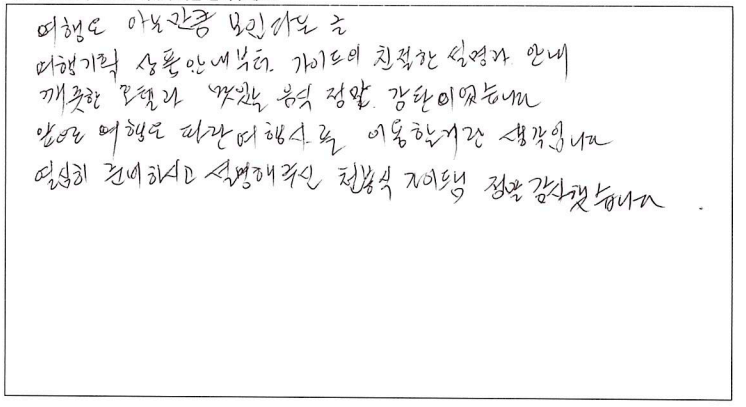 여행도 아는만큼 보인다는 글
여행기획 상품안내부터 가이드의 친절한 설명과 안내
깨끗한 호텔과 맛있는 음식 정말 감탄이었습니다
앞으로 여행도 파란여행사를 이용할거란 생각입니다
열심히 준비하시고 설명해주신 천봉식 가이드님 정말 감사했습니다.